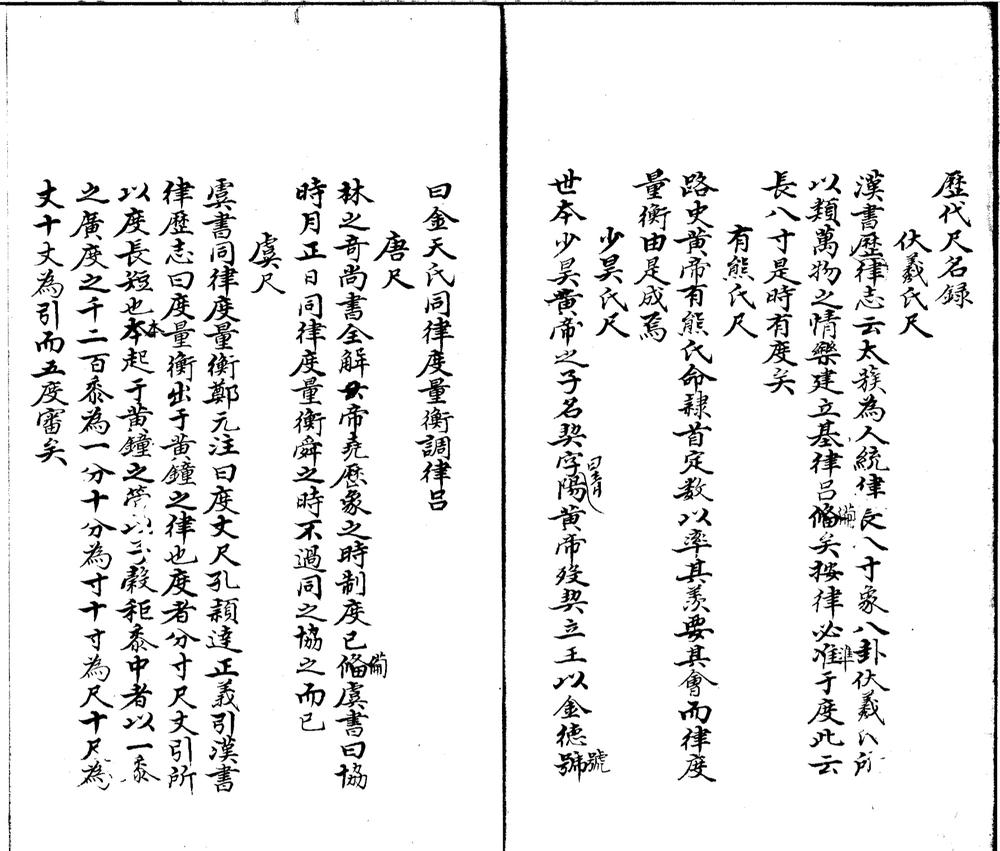 歷代尺名録
伏羲氏尺
漢書歴律志云太簇為人統律長八寸象八卦伏羲氏所
以類萬物之情樂建立基律呂俻備矣按律必准準于度此云
長八寸是時有度矣
有熊氏尺
路史黄帝有熊氏命隸首定数以率其羨要其會而律度
量衡由是成焉
少昊氏尺
世本少昊黄帝之子名契字陽曰青黄帝歿契立王以金徳號號
曰金天氏同律度量衡調律呂
唐尺
林之奇尚書全解曰帝堯厯象之時制度已俻備虞書曰協
時月正日同律度量衡舜之時不過同之協之而已
虞尺
虞書同律度量衡鄭元注曰度丈尺孔穎達正義引漢書
律歴志曰度量衡出于黄鐘之律也度者分寸尺丈引所
以度長短也夲本起于黄鐘之管以子穀秬黍中者以一黍
之廣度之千二百黍為一分十分為寸十寸為尺十尺為
丈十丈為引而五度審矣